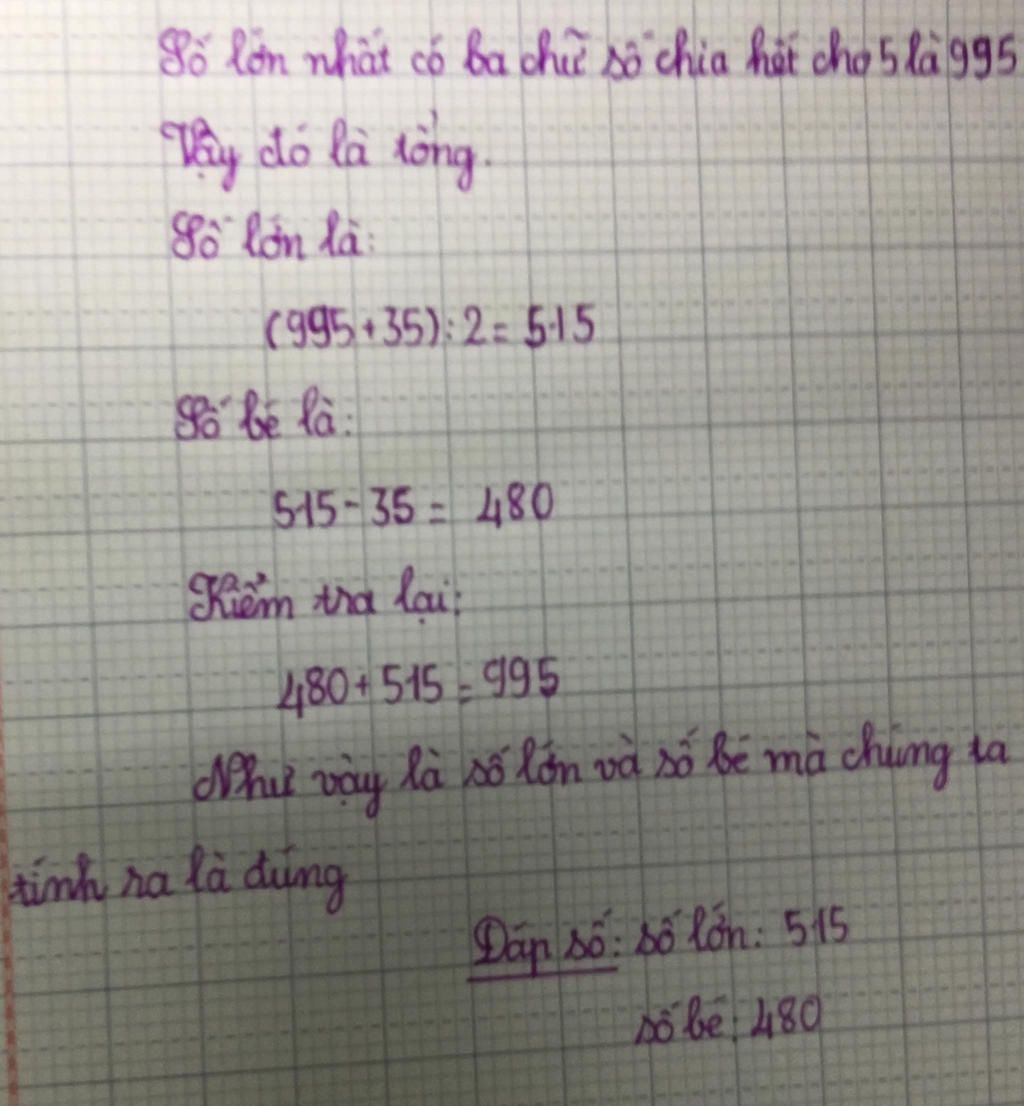 Số lớn nhất có ba chữ số chia hết cho 5 là 995
Vậy đó là tổng.
Số lớn là:
(995+35):2=515
Số bé là:
515-35= 480
Kiểm tra lại:
480+515=995
Như vậy là số lớn và số bé mà chúng ta
tính ra là đúng
Đáp số: số lớn: 515
số bé: 480